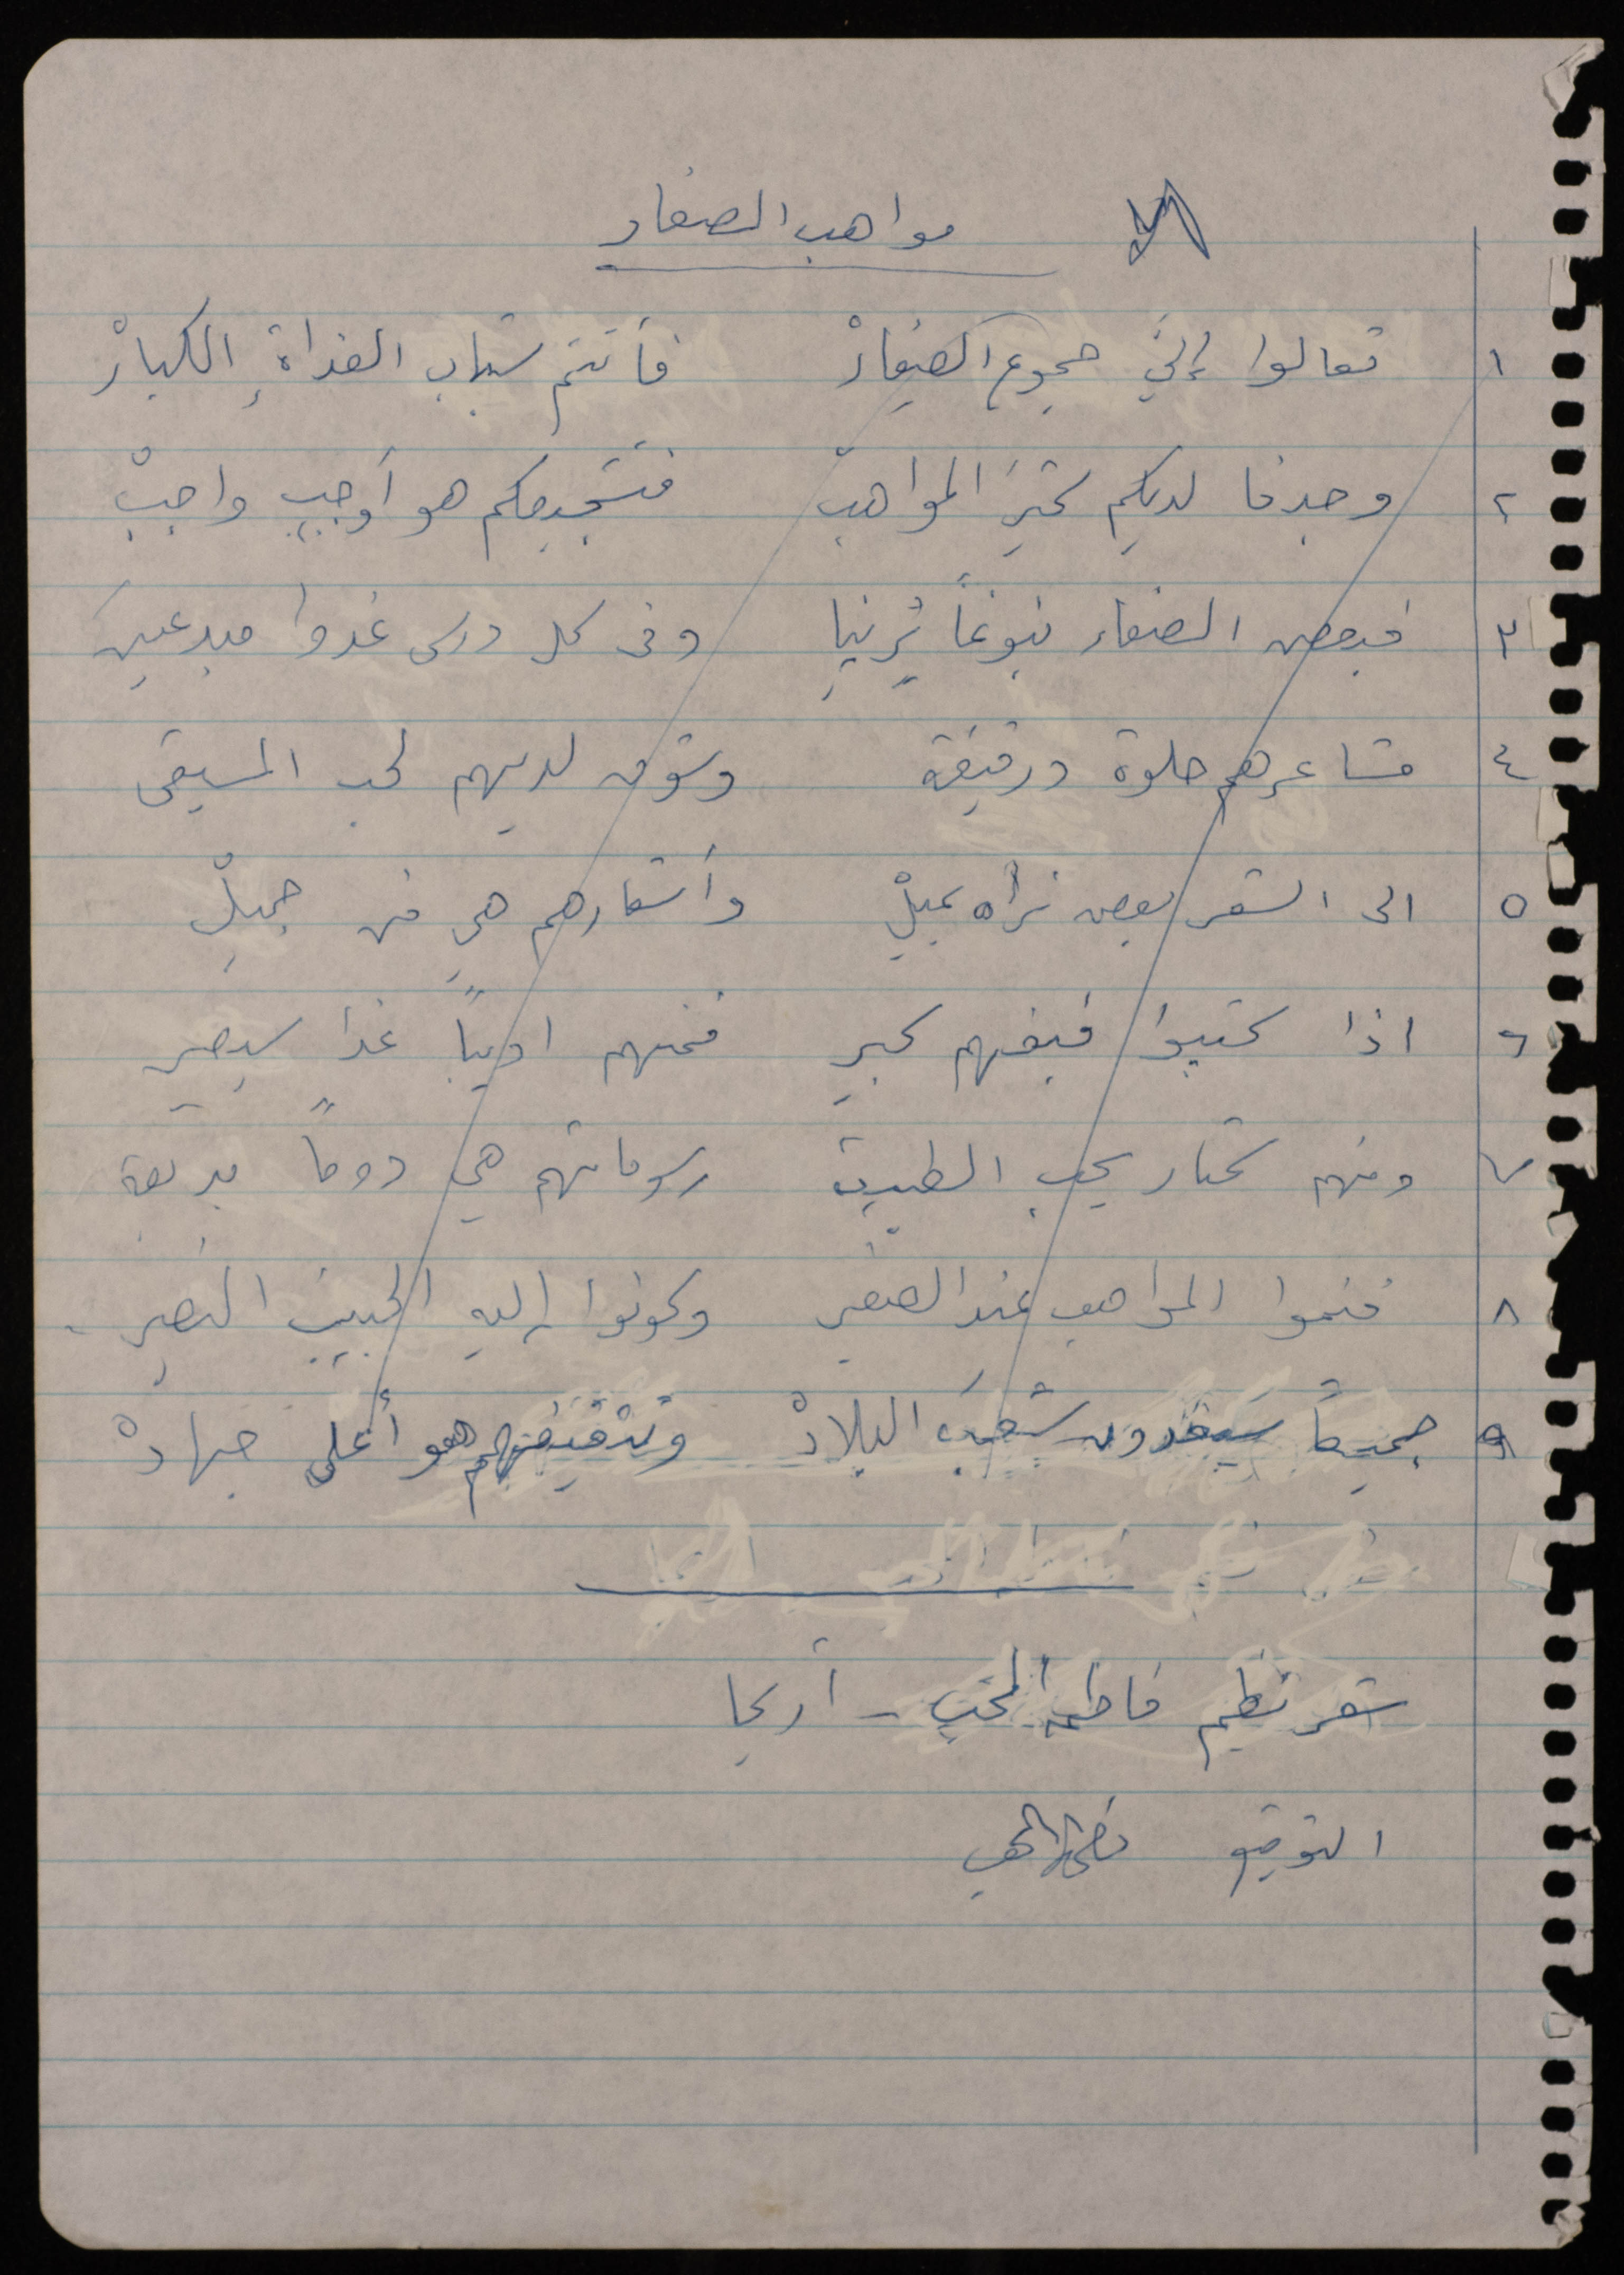 مواهب الصغار
١ تعالوا إليّ جموع الصغارْ فأنتم شباب الغداةِ الكبارْ
٢ وجدنا لديكم كثيرَ المواهبْ فتشجيعكم هو أوجب واجبْ
٣ فبعض الصغار نبوغاً يُرينا وفى كل درس غدوا مبدعينَ
٤ مشاعرهم حلوة ورقيقة وشوق لديهم لحب المسيقى
٥ الى الشعر بعض نراه يميلْ وأشعارهم هي فن جميلْ
٦ اذا كتبوا فبفهم كبير فمنهم اديباً غدا سيصير
٧ ومنهم كثار يحب الطبيعة رسوماتهم هي دوماً بديعة
٨ فنموا المواهب عند الصغير وكونوا إليه الحبيب النصير
٩ جميعاً سيغدون شعبَ البلادْ وتثقيفهم هو أعلى جهادْ
شعر نظيم فاطمة المحب - أريحا
التوقيع